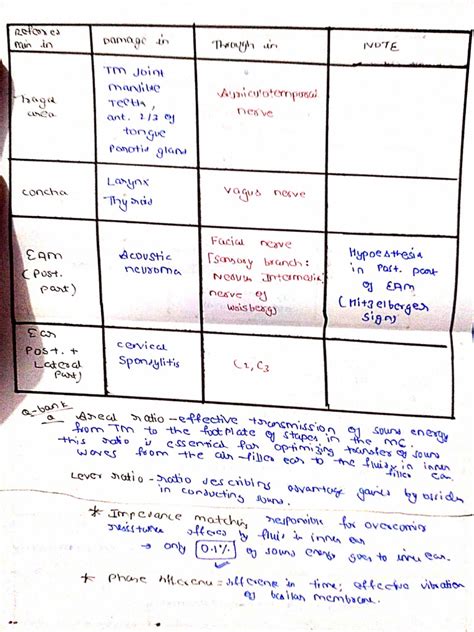 Referred
Pain in
Damage in
Through in
NOTE
Tragal
area
TM Joint
mandible
Teeth,
ant. 2/3 of
tongue
Parotid gland
Auriculotemporal
nerve
concha
Larynx
Thyroid
Vagus nerve
EAM
(Post.
part)
Acoustic
neuroma
Facial nerve
[Sensory branch:
Nervus Intermedius
nerve of
Wrisberg]
Hypoesthesia
in Post. part
of EAM
(Hitzelberger
sign)
Ear
Post. +
Lateral
part)
cervical
Spondylitis
C2, C3
Q-bank
Areal ratio - effective transmission of sound energy
from TM to the footplate of stapes in the MC.
this ratio is essential for optimizing transfer of sound
waves from the air-filled ear to the fluid in inner
filled ear.
Lever ratio - ratio describing advantage gained by ossicles
in conducting sound.
* Impedance matching responsible for overcoming
resistance offered by fluid in inner ear
→ only 0.1% of sound energy goes to inner ear.
* Phase difference = difference in time; effective vibration
of basilar membrane.